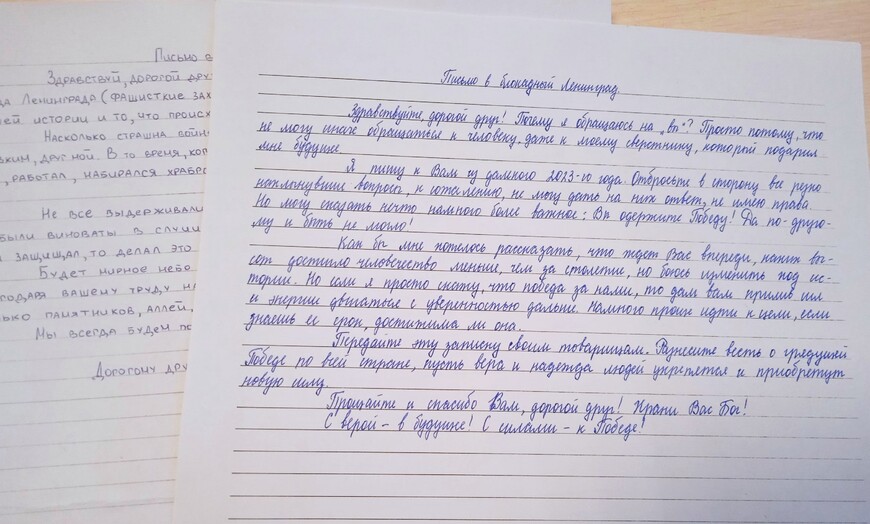 Письмо в
Здравствуй, дорогой дру
да Ленинграда (фашисткие зах
ей истории и то, что происх
Насколько страшна войн
ким, друг мой. В то время, ког
, работал, набирался храбро
Не все выдерживали
были виноваты в случи
защищал, то делал это
Будет мирное небо
годаря вашему труду на
ько памятников, аллей,
Мы всегда будем по
Дорогому дру
Письмо в блокадный Ленинград.
Здравствуйте, дорогой друг! Почему я обращаюсь на „вы"? Просто потому, что
не могу иначе обращаться к человеку, даже к моему сверстнику, который подарил
мне будущее.
Я пишу к Вам из далёкого 2023-го года. Отбросьте в сторону все резко
нахлынувшие вопросы, к сожалению, не могу дать на них ответ, не имею права.
Но могу сказать нечто намного более важное: Вы одержите Победу! Да по-друго-
му и быть не могло!
Как бы мне хотелось рассказать, что ждёт Вас впереди, каких вы-
сот достигло человечество меньше, чем за столетие, но боюсь изменить ход ис-
тории. Но если я просто скажу, что победа за нами, то дам вам прилив сил
и энергии двигаться с уверенностью дальше. Намного проще идти к цели, если
знаешь ее срок, достижима ли она.
Передайте эту записку своим товарищам. Разнесите весть о грядущей
Победе по всей стране, пусть вера и надежда людей укрепятся и приобретут
новую силу.
Прощайте и спасибо Вам, дорогой друг! Храни Вас Бог!
С верой – в будущее! С силами – к Победе!